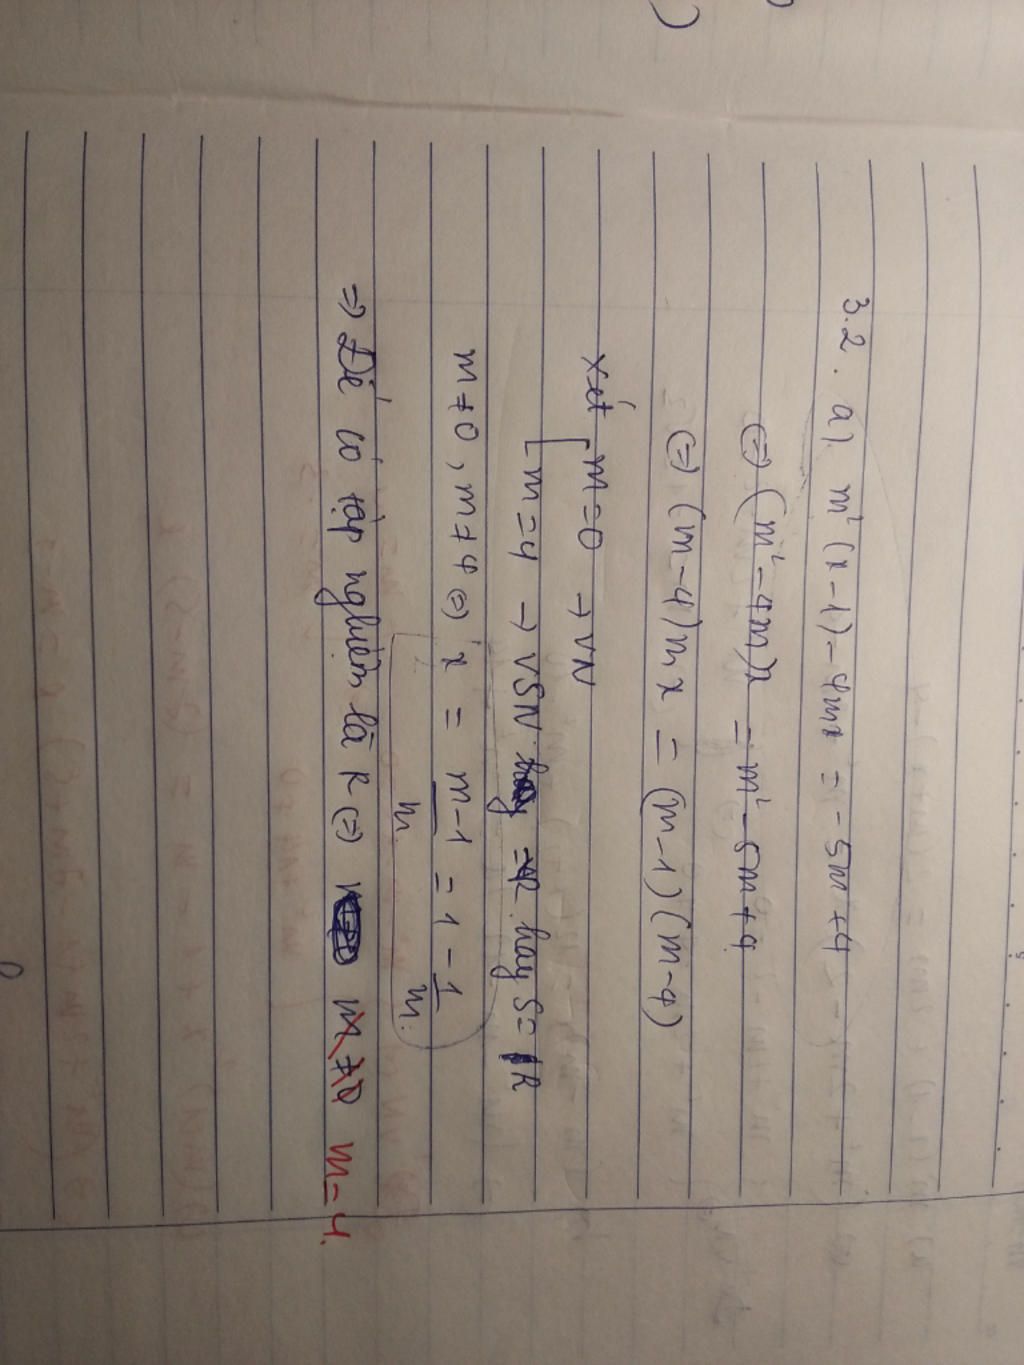 3.2. a) m² (x-1) - 4mx = -5m +4
⇔ (m² - 4m)x = m² - 5m + 4
⇔ (m-4)mx = (m-1)(m-4)
xét [ m = 0 → VN
[ m = 4 → VSN hay S = ℝ
m ≠ 0, m ≠ 4 ⇔ x = m-1/m = 1 - 1/m.
⇒ Để có tập nghiệm là R ⇔ m ≠ 0 m = 4.